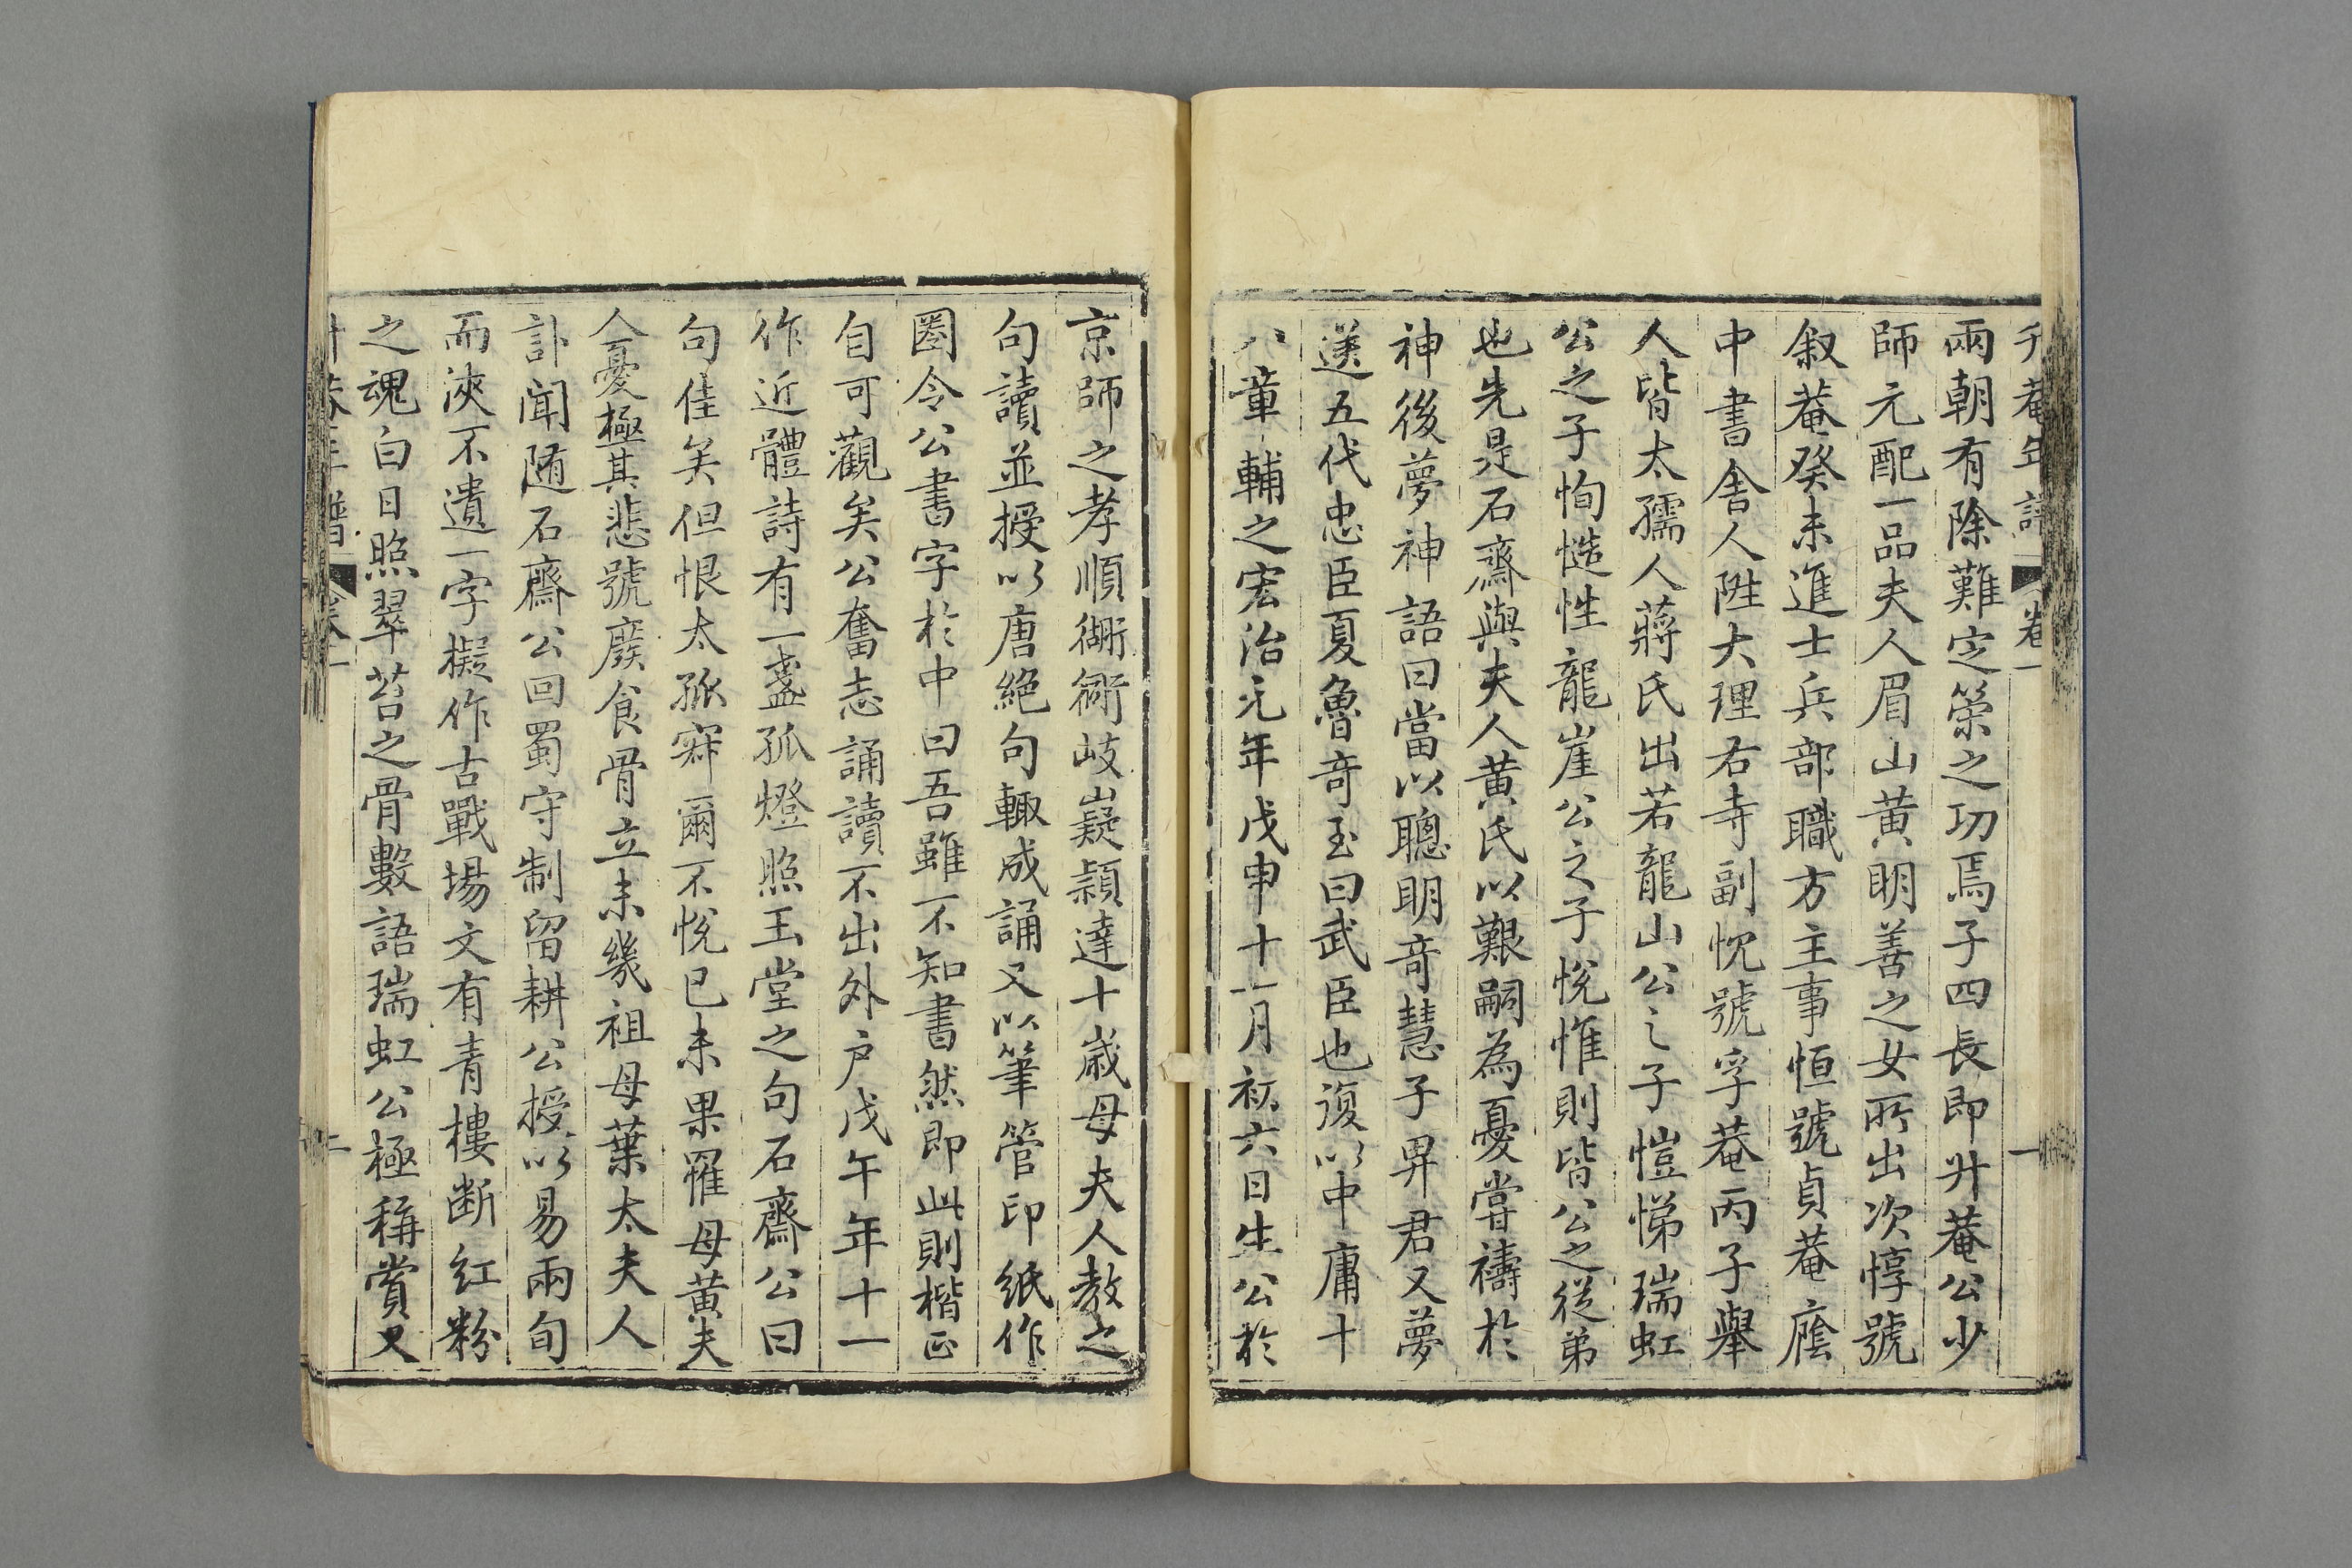 升菴年譜 卷一 一
兩朝有除難定策之功焉子四長即升菴公少
師元配一品夫人眉山黄明善之女所出次惇號
叙菴癸未進士兵部職方主事恒號貞菴廕
中書舍人陞大理右寺副忱號孚菴丙子舉
人皆太孺人蔣氏出若龍山公之子愷悌瑞虹
公之子恂慥性龍崖公之子悅惟則皆公之從弟
也先是石齋與夫人黄氏以艱嗣為憂嘗禱於
神後夢神語曰當以聰明竒慧子畀君又夢
送五代忠臣夏魯竒至曰武臣也復以中庸十
八章輔之宏治元年戊申十一月初六日生公於
京師之孝順衚衕岐嶷頴達十歲母夫人教之
句讀並授以唐絕句輙成誦又以筆管印紙作
圈令公書字於中曰吾雖不知書然即此則楷正
自可觀矣公奮志誦讀不出外户戊午年十一
作近體詩有一盞孤燈照玉堂之句石齋公曰
句佳矣但恨太孤寂爾不悅已未果罹母黄夫
人憂極其悲號廢食骨立未幾祖母葉太夫人
訃聞随石齋公回蜀守制留耕公授以易兩旬
而浹不遺一字擬作古戰場文有青樓断紅粉
之魂白日照翠苔之骨數語瑞虹公極稱賞又